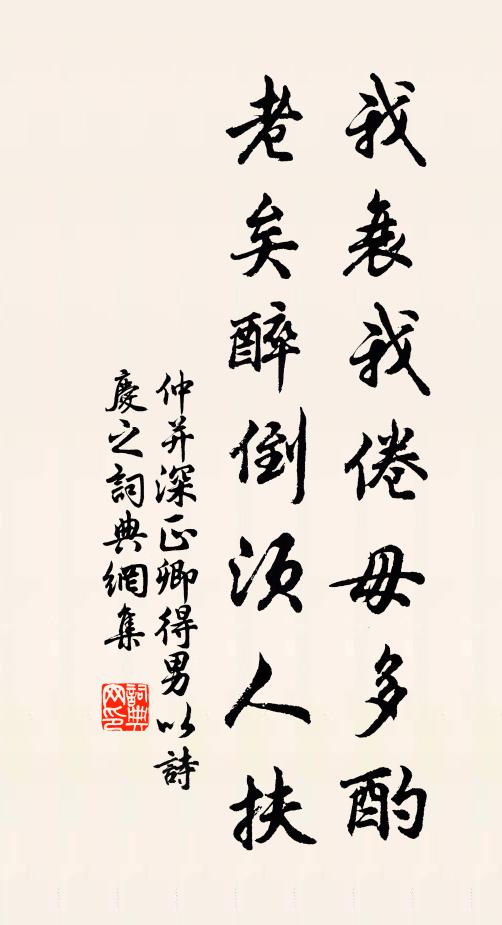 我衰我倦毋多酌
老矣醉倒須人扶
仲并深正卿得男以詩
慶之詞典網集
詞典网印